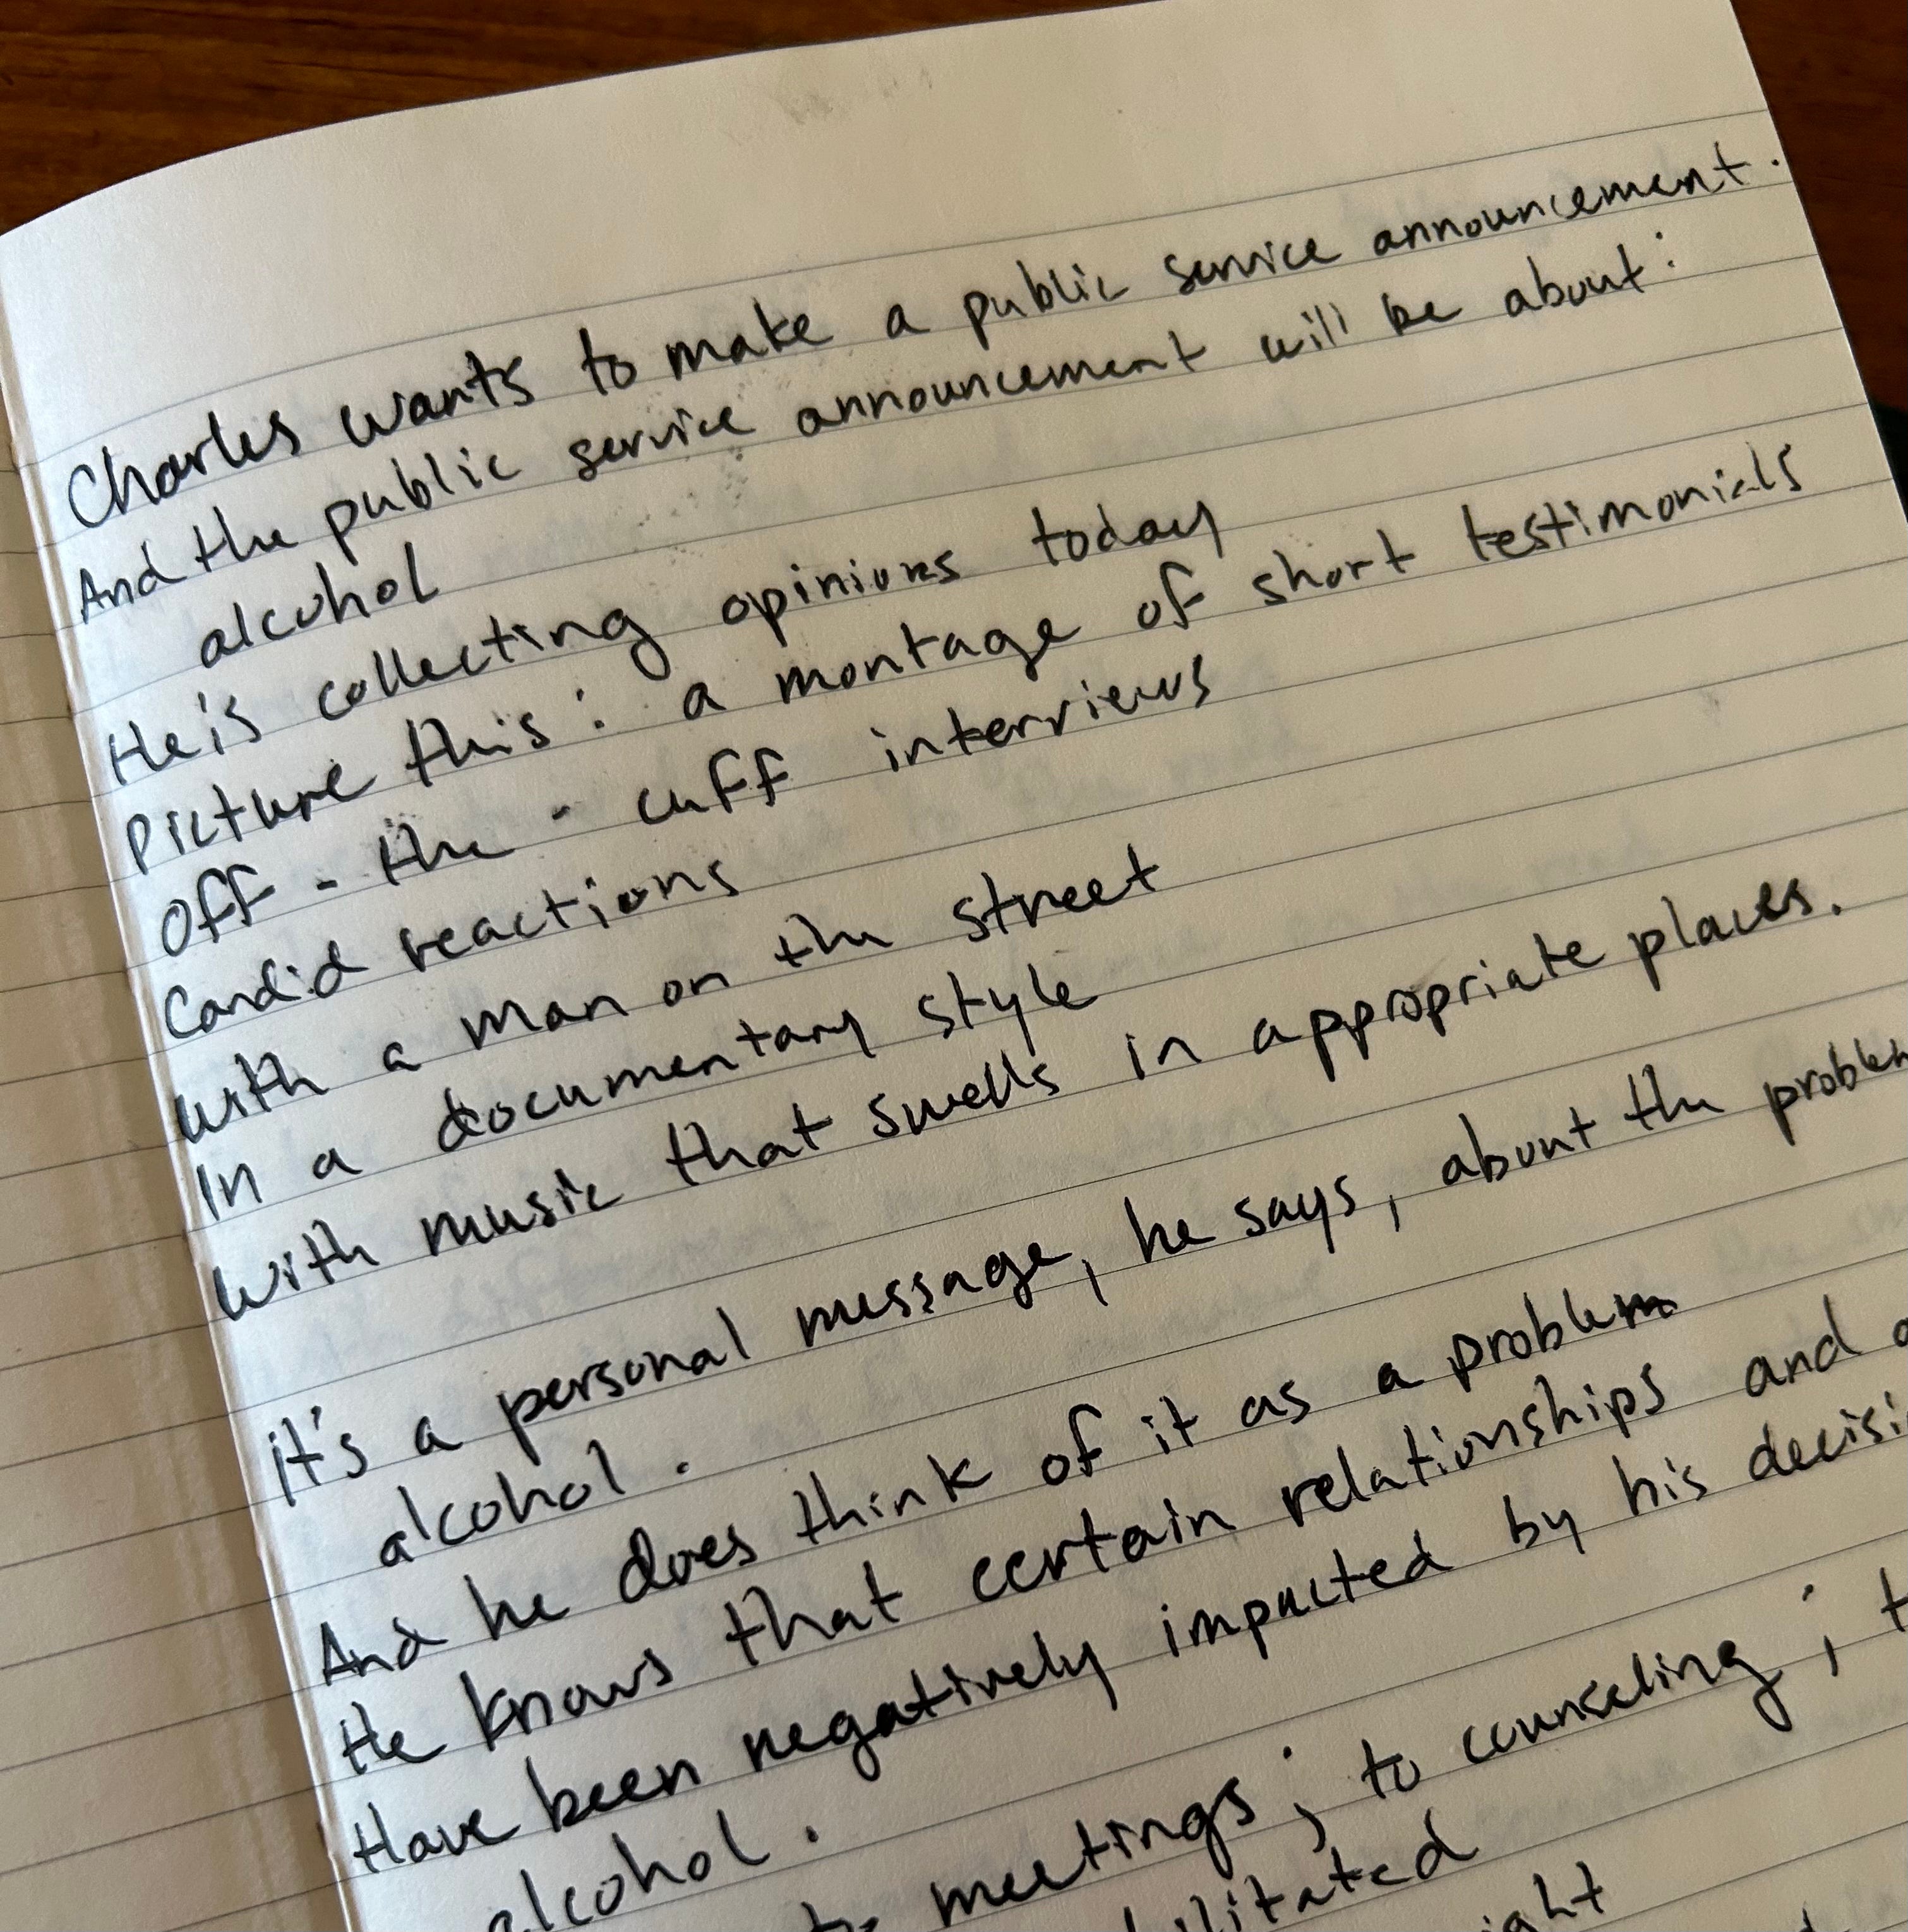 Charles wants to make a public service announcement.
And the public service announcement will be about:
alcohol
He is collecting opinions today
Picture this: a montage of short testimonials
Off-the-cuff interviews
Candid reactions
With a man on the street
In a documentary style
With music that swells in appropriate places.
it's a personal message, he says, about the problem
alcohol.
And he does think of it as a problem
He knows that certain relationships and
Have been negatively impacted by his
alcohol.
meetings; to counseling;